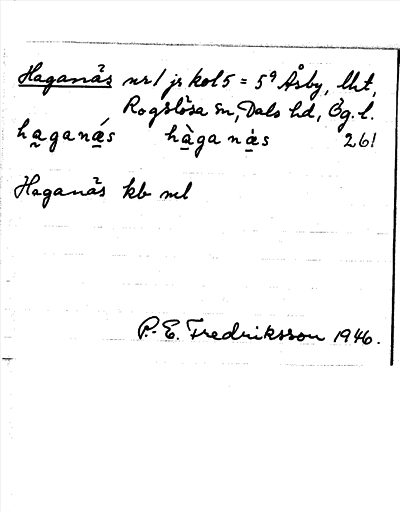 Haganäs nr 1 jr kol 5 = 5⁹ Åsby, lht,
Rogslösa sn, Dals hd, Ög. l.
haganǽs hàganæ̀s 26!
Haganäs kb ml
P. E. Fredriksson 1946.